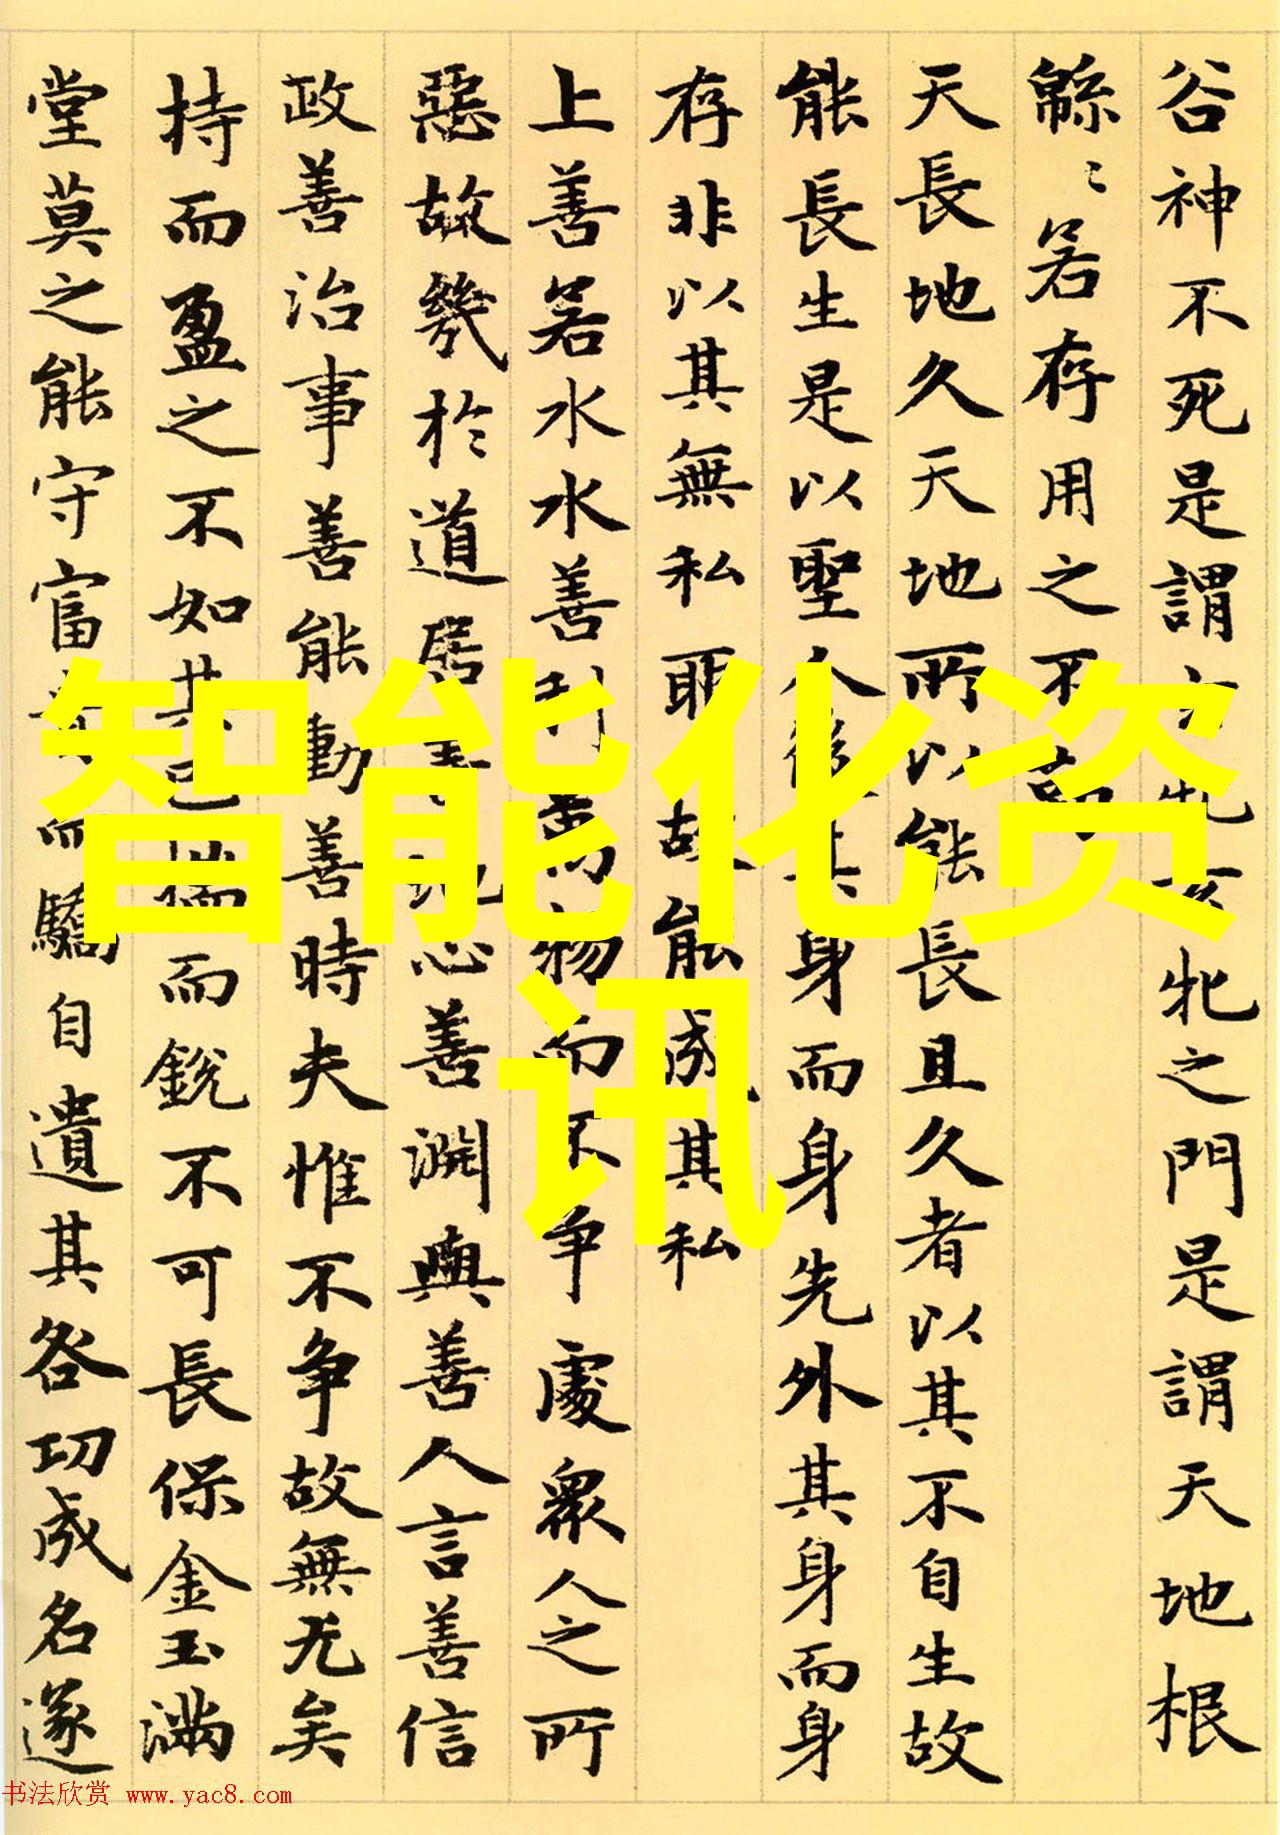 谷神不死是謂玄牝玄牝之門是謂天地根
緜〻若存用之不勤
天長地久天地所以能長且久者以其不自生故
能長生是以聖人後其身而身先外其身而身
存非以其無私耶故能成其私
上善若水水善利萬物而不争處衆人之所
惡故幾於道居善地心善淵與善人言善信
政善治事善能動善時夫惟不争故無尤矣
持而盈之不如其已揣而銳不可長保金玉滿
堂莫之能守富貴而驕自遺其咎功成名遂
智能化资
讯
书法欣赏 www.yac8.com